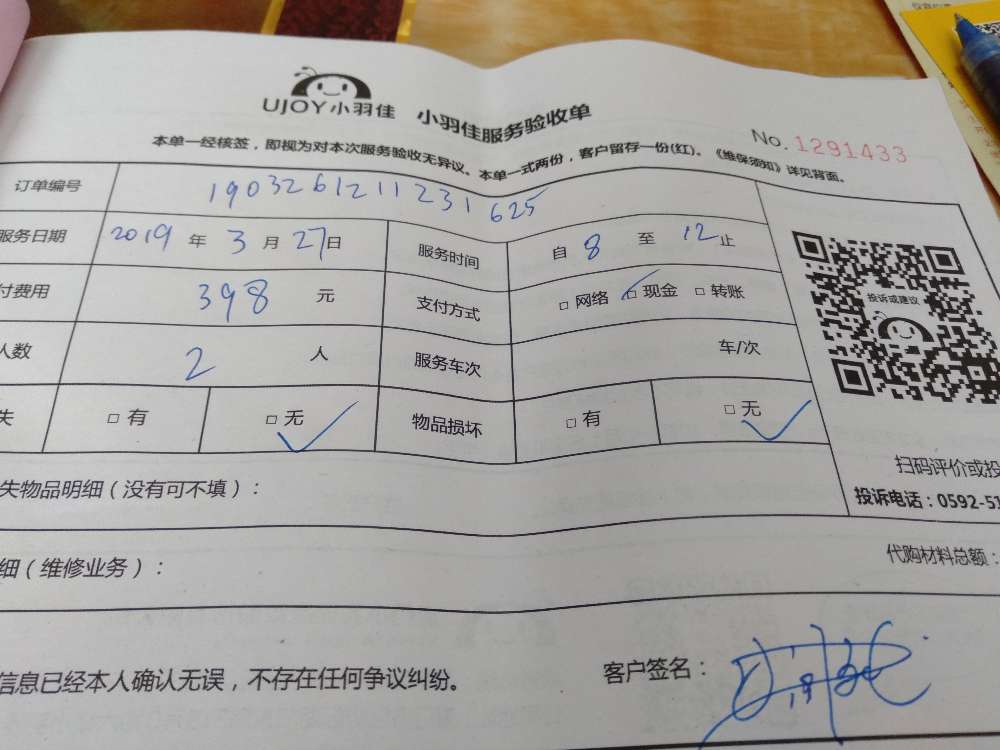 UJOY小羽佳 小羽佳服务验收单
No. 1291433
本单一经核签，即视为对本次服务验收无异议。本单一式两份，客户留存一份(红)。《维保须知》详见背面。
订单编号 1903261211231625
服务日期 2019 年 3 月 27 日 服务时间 自 8 至 12 止
付费用 398 元 支付方式 □ 网络 □ 现金 □ 转账
人数 2 人 服务车次 车/次
失 □ 有 □ 无 物品损坏 □ 有 □ 无
投诉或建议
扫码评价或投
投诉电话：0592-51
失物品明细（没有可不填）：
代购材料总额：
细（维修业务）：
信息已经本人确认无误，不存在任何争议纠纷。
客户签名：